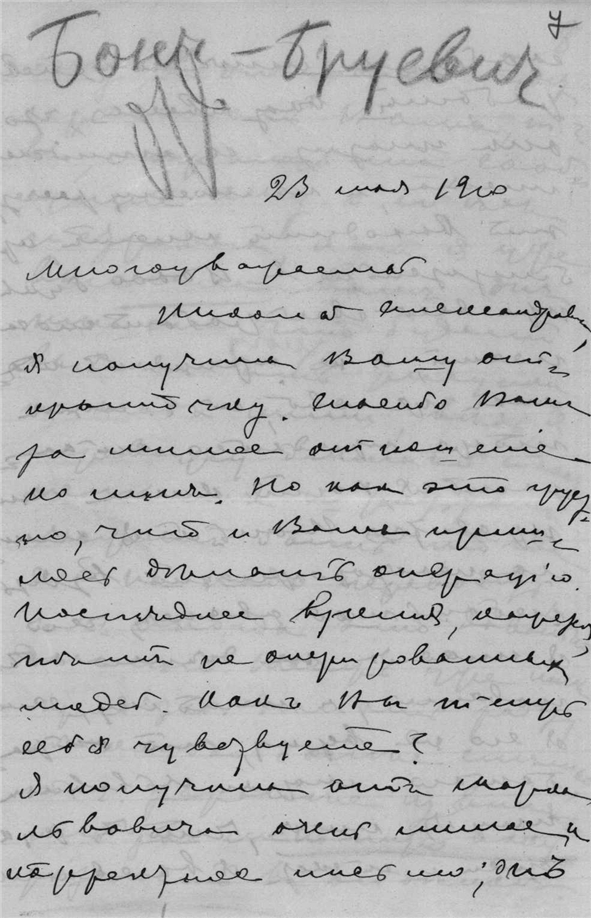 7
Бонч-Бруевич
23 мая 1910
Многоуважаемый
Николай Александрович,
я получила Вашу от-
крыточку. Спасибо Вам
за милое отношение
ко мне. Но как это груст-
но, что и Вам приш-
лось делать операцію.
Последнее время, кажется,
нет не оперированных
людей. Какъ Вы теперь
себя чувствуете?
Я получила отъ Марка
Львовича очень милое и
корректное письмо;